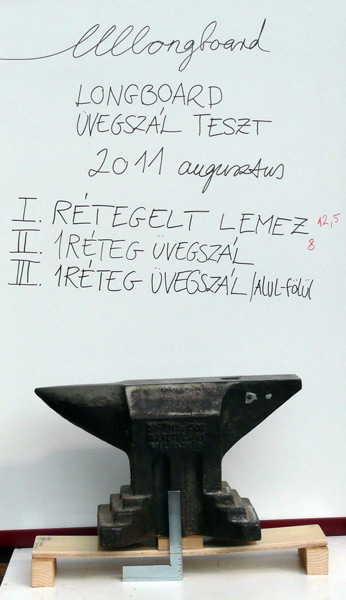 Ulllongboard
LONGBOARD
ÜVEGSZÁL TESZT
2011 augusztus
I. RÉTEGELT LEMEZ 12,5
II. 1RÉTEG ÜVEGSZÁL 8
III. 1RÉTEG ÜVEGSZÁL/ALUL-FÖLÜL